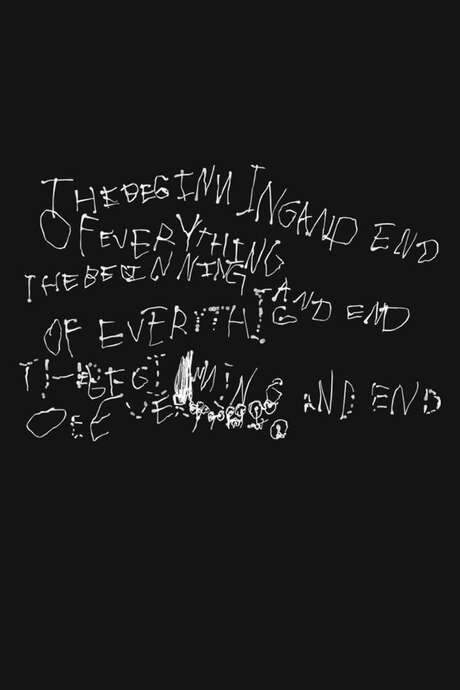 THEBEGINN INGAND END
OFEVERYTHING
THEBEGINNING AND END
OF EVERYTHI G
THEBEGI NNING AND END
OF EVE